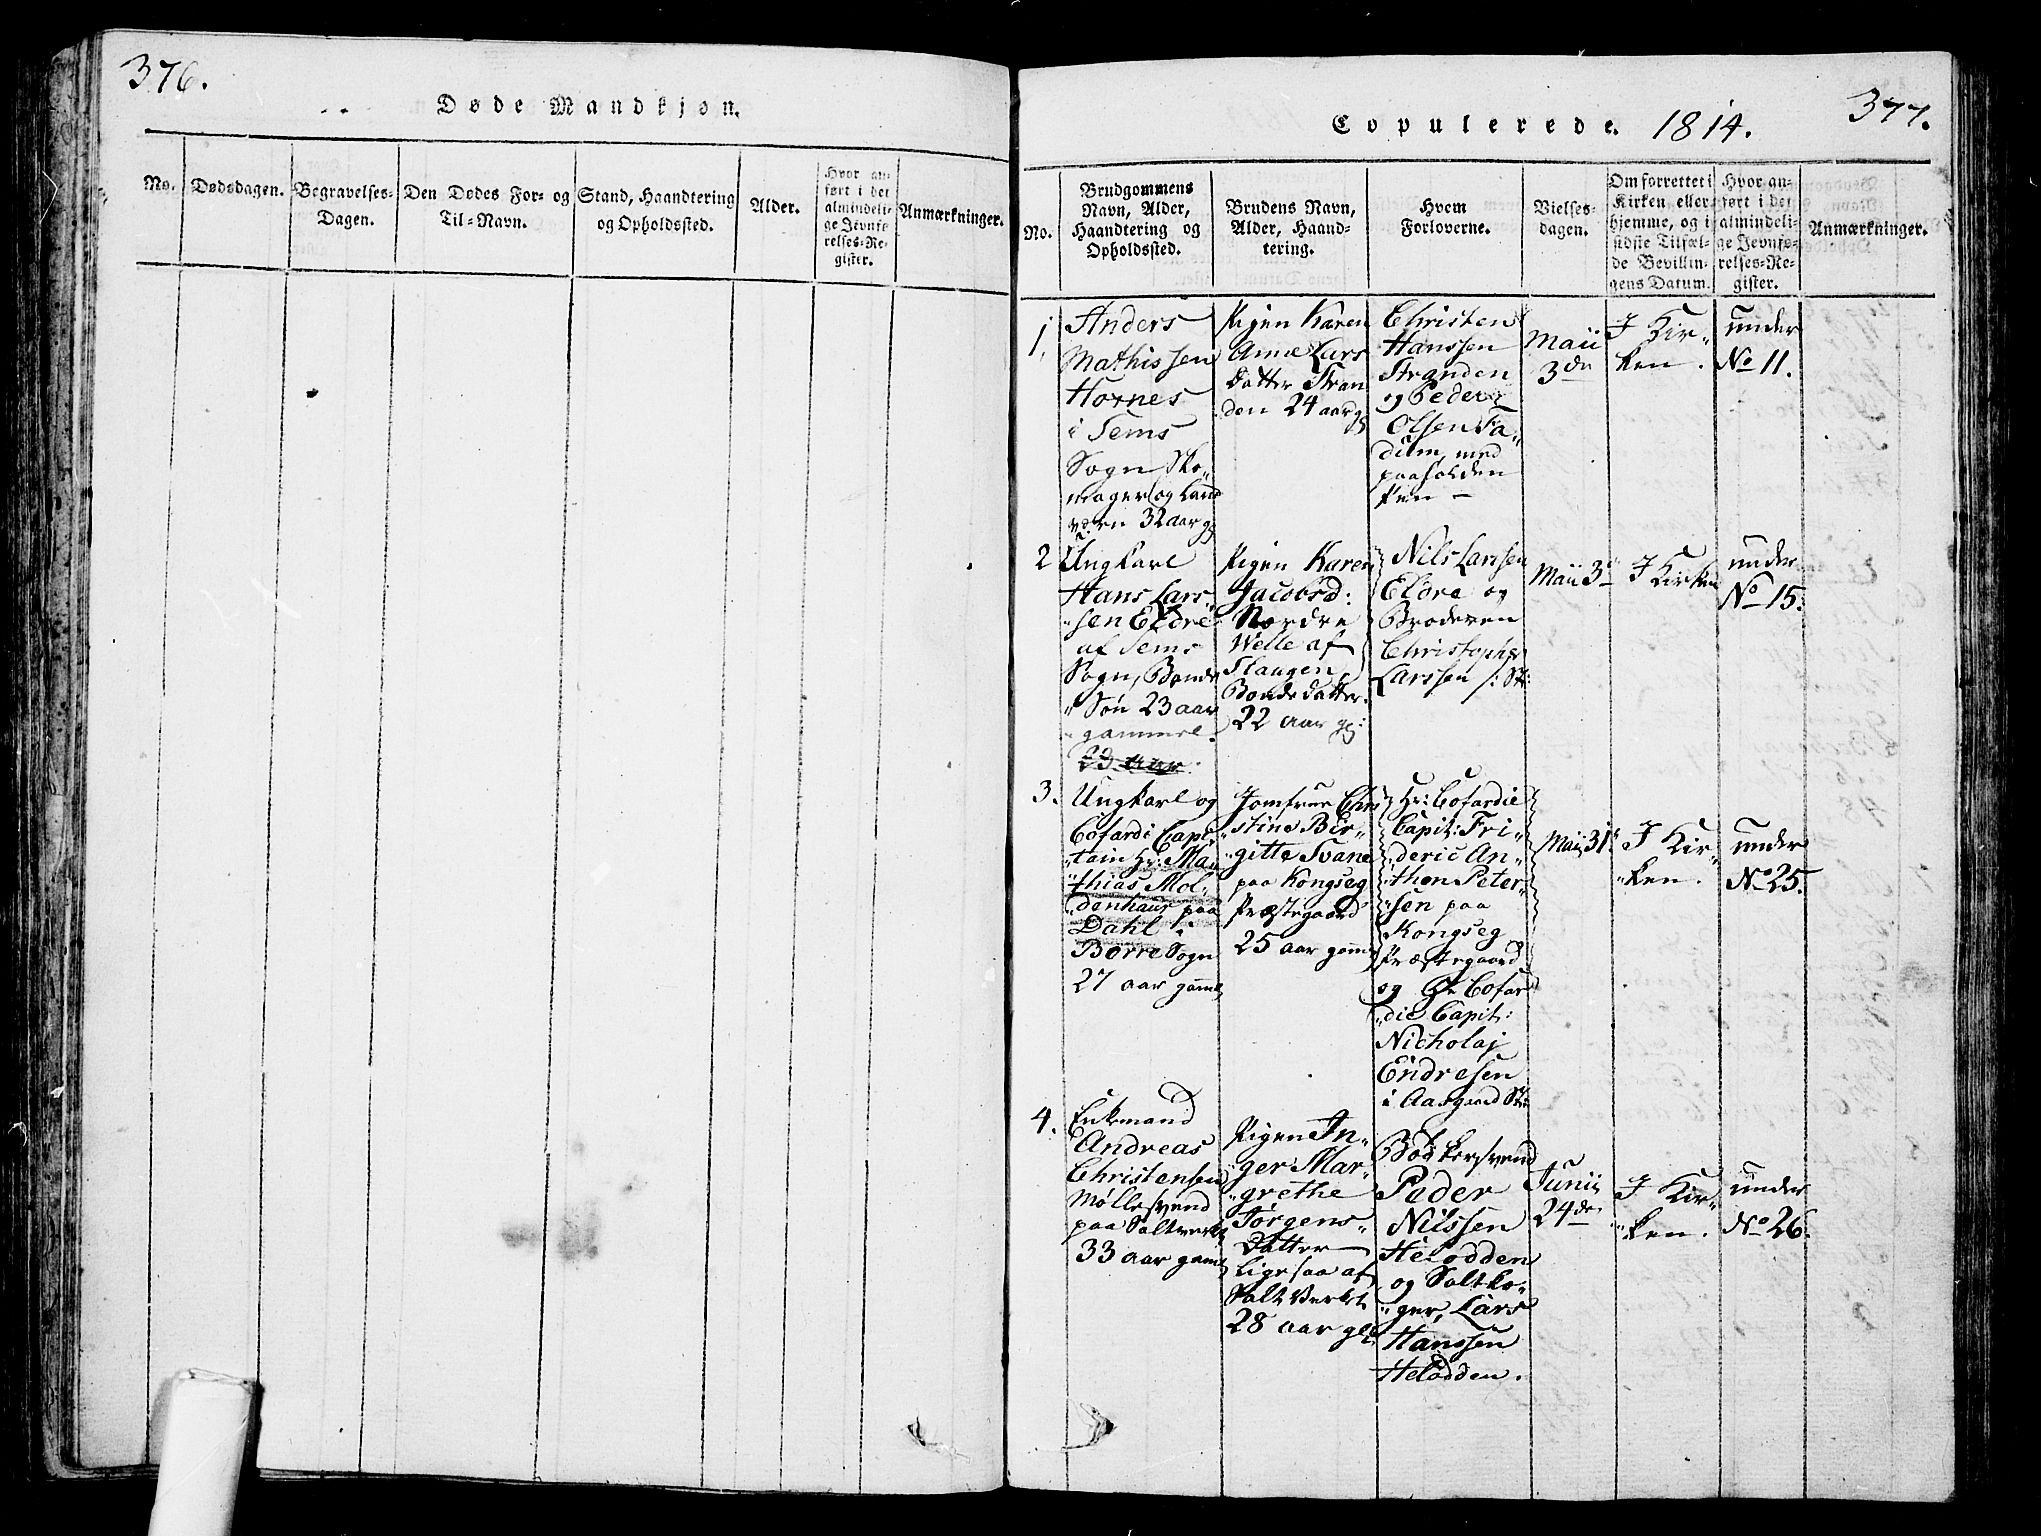 376.
Døde Mandkjøn.
No.
Dødsdagen.
Begravelses-
Dagen.
Den Dødes For- og
Til-Navn.
Stand, Haandtering
og Opholdssted.
Alder.
Hvor an-
ført i det
almindeli-
ge Jevnfø-
relses-Re-
gister.
Anmærkninger.
377.
Copulerede. 1814.
No.
Brudgommens
Navn, Alder,
Haandtering og
Opholdssted.
Brudens Navn,
Alder, Haand-
tering.
Hvem
Forloverne.
Vielses-
dagen.
Om forrettet i
Kirken eller
hjemme, og i
sidste Tilfæl-
de Bevillin-
gens Datum.
Hvor an-
ført i det
almindeli-
ge Jevnfø-
relses-Re-
gister.
Anmærkninger.
1.
Anders
Mathissen
Hornes
i Sems
Sogn Sko-
mager og Land
32 aar
Pigen Karen
Anne Lars
Datter Stran
den 24 aar
Christen
Hanssen
Stranden
og Peder
Olsen Fa-
dum, med
paaholden
Pen -
Maii
3de
I Kir-
ken.
under
No 11.
2
Ungkarl
Hans Lars-
sen Eldre
af Sems
Sogn, Bonde
Søn 23 aar
gammel.
23 aar
Pigen Karen
Jacobsd:
Nordre
Welle af
Slaugen
Bondedatter
22 aar gl:
Nils Larssen
Eldre og
Broderen
Christopher
Larssen /: St:
Maii 3d
I Kirken
under
No 15.
3.
Ungkarl og
Cofardi Capi-
tain Hr: Mat
thias Mol-
denhaur paa
Dahl i
Borre Sogn
27 aar gaml
Jomfrue Chri
stine Bir-
gitte Svane
paa Kongseg
Præstegaard
25 aar gaml
Hr: Cofardie
Capit: Fri-
deric An-
thon Peter-
sen paa
Kongseg
Præstegaard
og Hr Cofar
die Capit:
Nicholaj
Endresen
i Aasgaard St:
Maii 31t
I Kir-
ken.
under
No 25.
4.
Enkemand
Andreas
Christensen
Møllesvend
paa Saltverket
33 aar gaml
Pigen In-
ger Mar-
grethe
Jørgens-
Datter
ligesaa af
Salt Verket
28 aar gl
Bødkersvend
Peder
Nilssen
Helodden
og Saltko-
ger, Lars
Hanssen
Helodden.
Junii
24de
I Kir-
ken.
under
No 26.